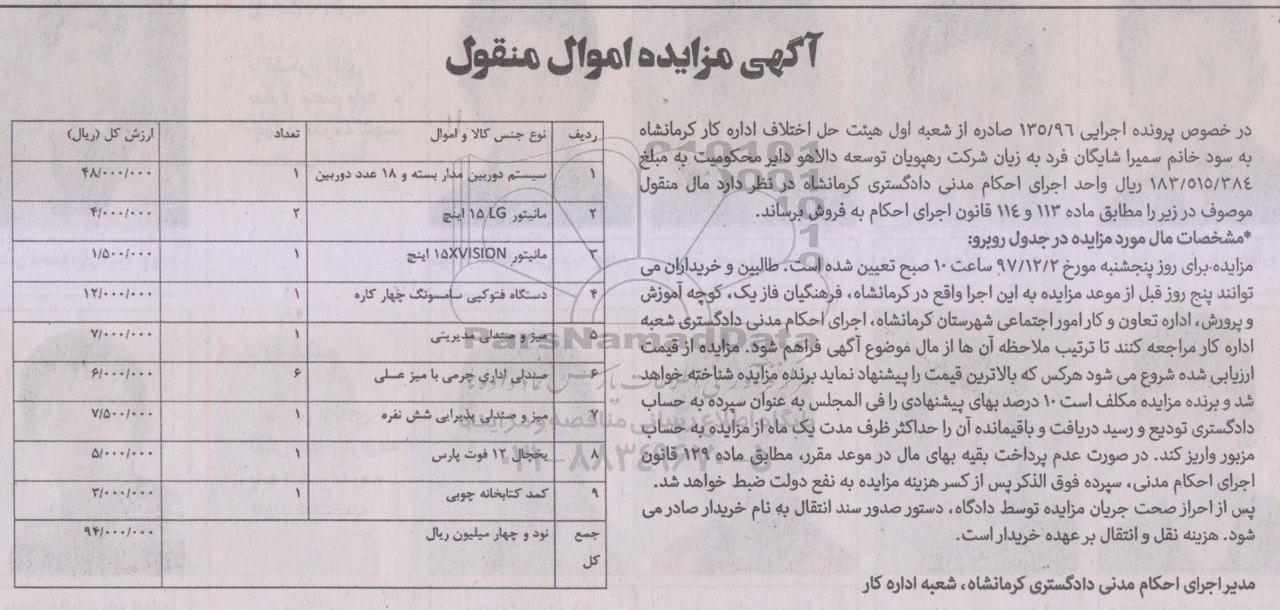 آگهی مزایده اموال منقول
در خصوص پرونده اجرایی ۱۳۵/۹۶ صادره از شعبه اول هیئت حل اختلاف اداره کار کرمانشاه
به سود خانم سمیرا شایگان فرد به زیان شرکت رهپویان توسعه دالاهو دایر محکومیت به مبلغ
۱۸۳/۵۱۵/۳۸٤ ریال واحد اجرای احکام مدنی دادگستری کرمانشاه در نظر دارد مال منقول
موصوف در زیر را مطابق ماده ۱۱۳ و ۱۱٤ قانون اجرای احکام به فروش برساند.
*مشخصات مال مورد مزایده در جدول روبرو:
مزایده.برای روز پنجشنبه مورخ ۹۷/۱۲/۲ ساعت ۱۰ صبح تعیین شده است. طالبین و خریداران می
توانند پنج روز قبل از موعد مزایده به این اجرا واقع در کرمانشاه، فرهنگیان فاز یک، کوچه آموزش
و پرورش، اداره تعاون و کار امور اجتماعی شهرستان کرمانشاه، اجرای احکام مدنی دادگستری شعبه
اداره کار مراجعه کنند تا ترتیب ملاحظه آن ها از مال موضوع آگهی فراهم شود. مزایده از قیمت
ارزیابی شده شروع می شود هرکس که بالاترین قیمت را پیشنهاد نماید برنده مزایده شناخته خواهد
شد و برنده مزایده مکلف است ۱۰ درصد بهای پیشنهادی را فی المجلس به عنوان سپرده به حساب
دادگستری تودیع و رسید دریافت و باقیمانده آن را حداکثر ظرف مدت یک ماه از مزایده به حساب
مزبور واریز کند. در صورت عدم پرداخت بقیه بهای مال در موعد مقرر، مطابق ماده ۱۲۹ قانون
اجرای احکام مدنی، سپرده فوق الذکر پس از کسر هزینه مزایده به نفع دولت ضبط خواهد شد.
پس از احراز صحت جریان مزایده توسط دادگاه، دستور صدور سند انتقال به نام خریدار صادر می
شود. هزینه نقل و انتقال بر عهده خریدار است.
مدیر اجرای احکام مدنی دادگستری کرمانشاه، شعبه اداره کار
ردیف نوع جنس کالا و اموال تعداد ارزش کل (ریال)
۱ سیستم دوربین مدار بسته و ۱۸ عدد دوربین ۱ ۴۸/۰۰۰/۰۰۰
۲ مانیتور LG ۱۵ اینچ ۲ ۴/۰۰۰/۰۰۰
۳ مانیتور ۱۵XVISION اینچ ۱ ۱/۵۰۰/۰۰۰
۴ دستگاه فتوکپی سامسونگ چهار کاره ۱ ۱۲/۰۰۰/۰۰۰
۵ میز و صندلی مدیریتی ۱ ۷/۰۰۰/۰۰۰
۶ صندلی اداری چرمی با میز عسلی ۶ ۶/۰۰۰/۰۰۰
۷ میز و صندلی پذیرایی شش نفره ۱ ۷/۵۰۰/۰۰۰
۸ یخچال ۱۲ فوت پارس ۱ ۵/۰۰۰/۰۰۰
۹ کمد کتابخانه چوبی ۱ ۳/۰۰۰/۰۰۰
جمع کل نود و چهار میلیون ریال ۹۴/۰۰۰/۰۰۰
ParsNamadData
پایگاه اطلاع رسانی مناقصه و مزایده
۰۲۱-۸۸۳۴۹۶۷۰-۵